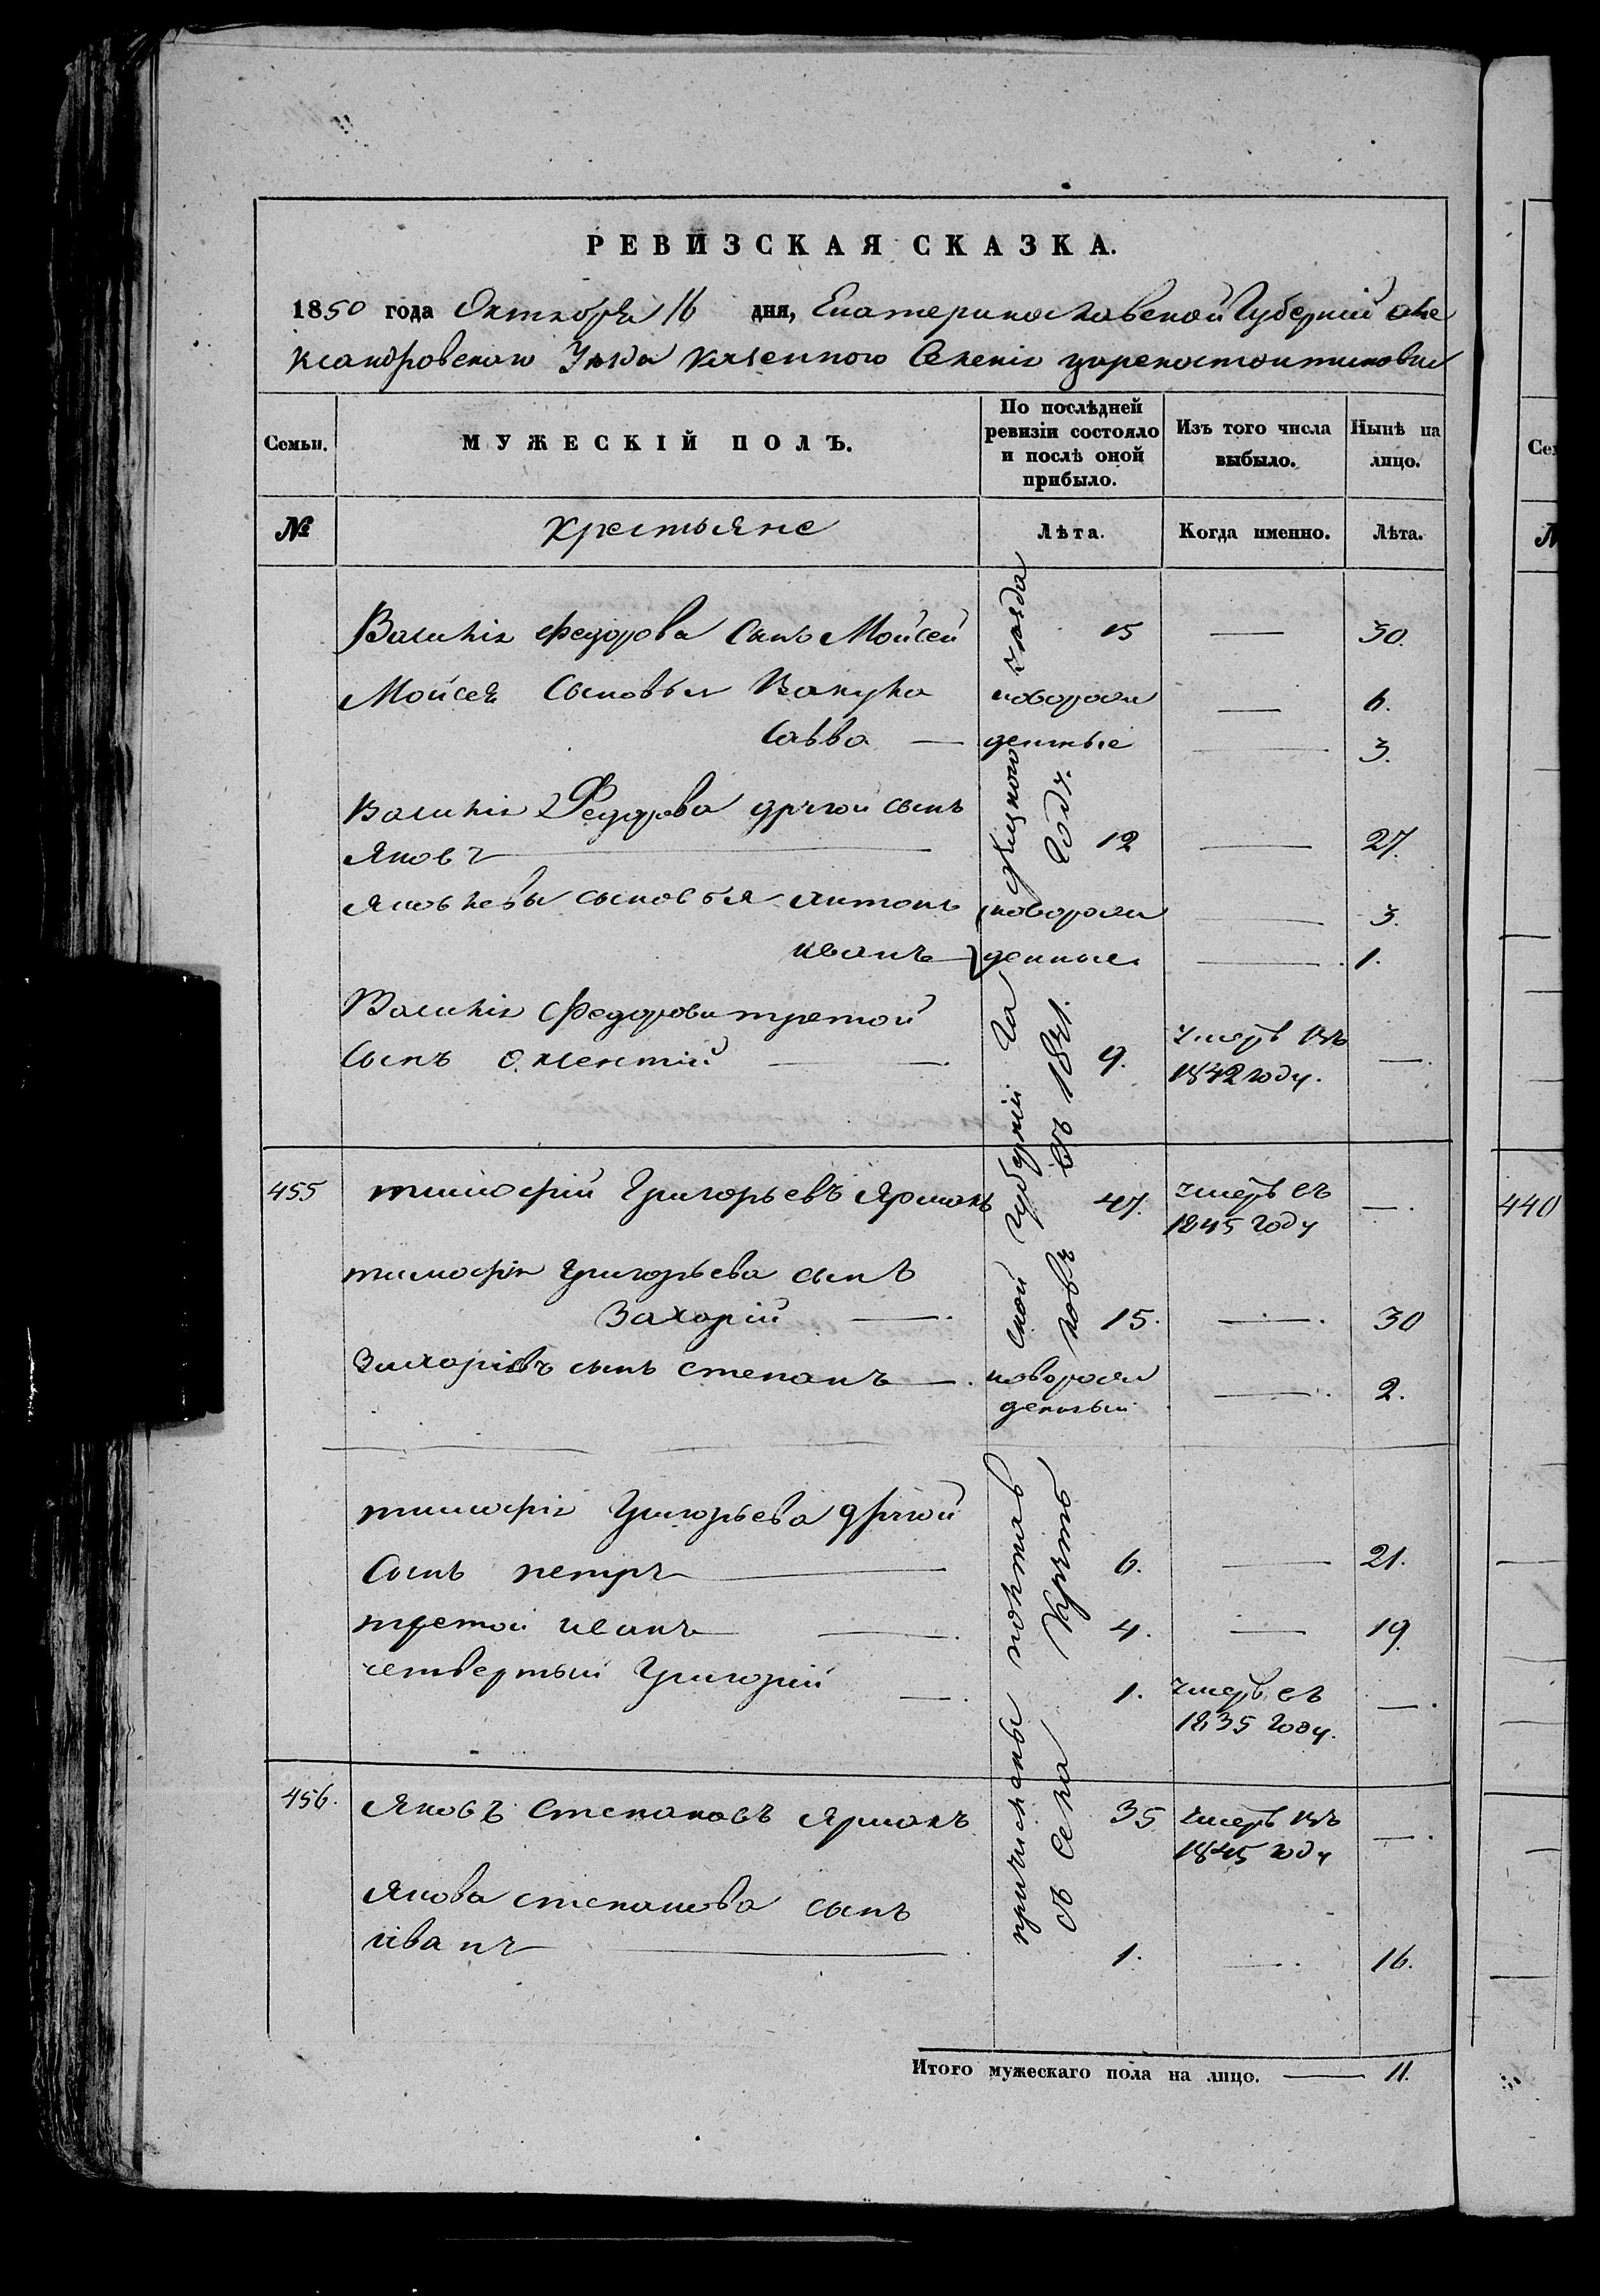 РЕВИЗСКАЯ СКАЗКА.
1850 года Октября 16 дня, Екатеринославской Губерніи Але
ксандровскаго Уѣзда Казенного Селенія Цареконстантиновки
Семьи.
МУЖЕСКІЙ ПОЛЪ.
По послѣдней ревизіи состояло и послѣ оной прибыло.
Изъ того числа выбыло.
Нынѣ на лицо.
№
Крестьяне
Лѣта.
Когда именно.
Лѣта.
причислены Полтавской губерніи Гадяцкого уѣзда
съ села Круть въ 1841 Году.
Василія Федорова Сынъ Мойсей 15 — 30.
Мойсея Сыновья Вакула новорож — 6.
Савва — денные — 3.
Василія Федорова другой сынъ
Яковъ — 12 — 27.
Яковлевы сыновья Антонъ новорож — 3.
иванъ — денные — 1.
Василія Федорова третой
Сынъ — 9. умеръ въ 1842 году. —
455 тимофій Григорьевъ Ярмакъ 47. умеръ въ 1845 году —
тимофія Григорьева сынъ
Захарій — 15. — 30
Захаріевъ сынъ степанъ — новорож
денный — 2.
тимофія Григорьева другой
Сынъ петръ — 6. — 21.
третой иванъ — 4. — 19.
четвертый Григорій — 1. умеръ въ 1835 году. —
456. Яковъ степановъ Ярмакъ 35 умеръ въ 1845 году —
Якова степанова сынъ
иванъ — 1. — 16.
Итого мужескаго пола на лицо. — 11.
440